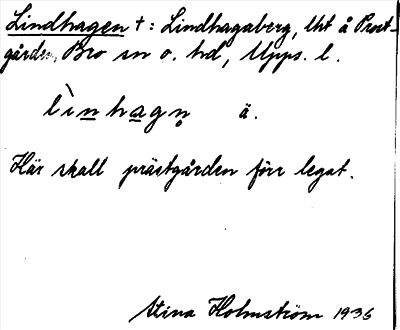 Lindhagen +: Lindhagaberg, lht å Prost-
gården, Bro sn o. hd, Upps. l.
lìnhagn̥ ä.
Här skall prästgården förr legat.
Stina Holmström 1936